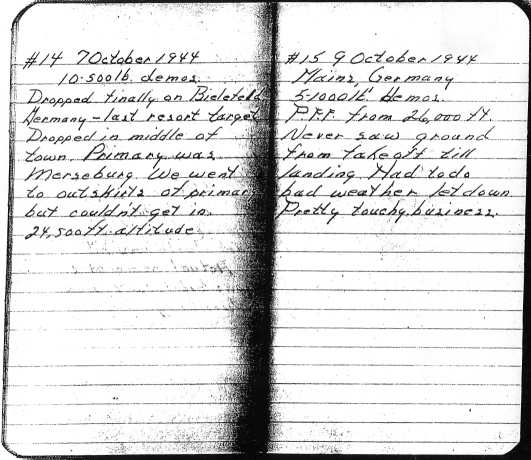 #14 7 October 1944
10-500lb. demos.
Dropped finally on Bielefeld
Germany - last resort target
Dropped in middle of
town. Primary was
Merseburg. We went
to outskirts of primary
but couldn't get in.
24,500 ft. altitude
#15 9 October 1944
Mainz, Germany
5-1000lb demos.
P.F.F. from 26,000 ft.
Never saw ground
from takeoff till
landing. Had to do
bad weather let down
Pretty touchy business.